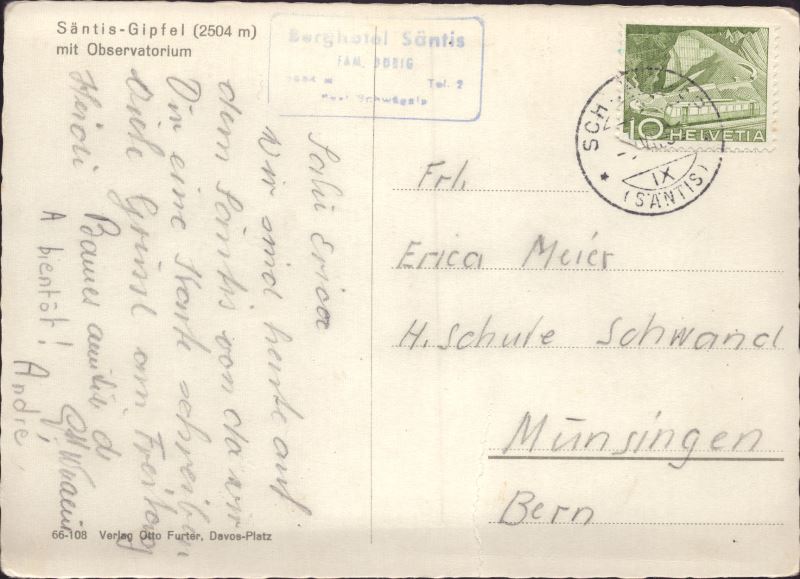 Säntis-Gipfel (2504 m)
mit Observatorium
Berghotel Säntis
FAM. DOBIG
Tel. 2
Post Schwägalp
10 HELVETIA
SCH
IX
(SÄNTIS)
Salü Erica
Wir sind heute auf
dem Säntis von da wir
Dir eine Karte schreiben
Viele Grüsse am Freitag
Heidi
Bonnes amitiés de
A bientôt!
André
Frl.
Erica Meier
H. Schule Schwand
Münsingen
Bern
66-108 Verlag Otto Furter, Davos-Platz